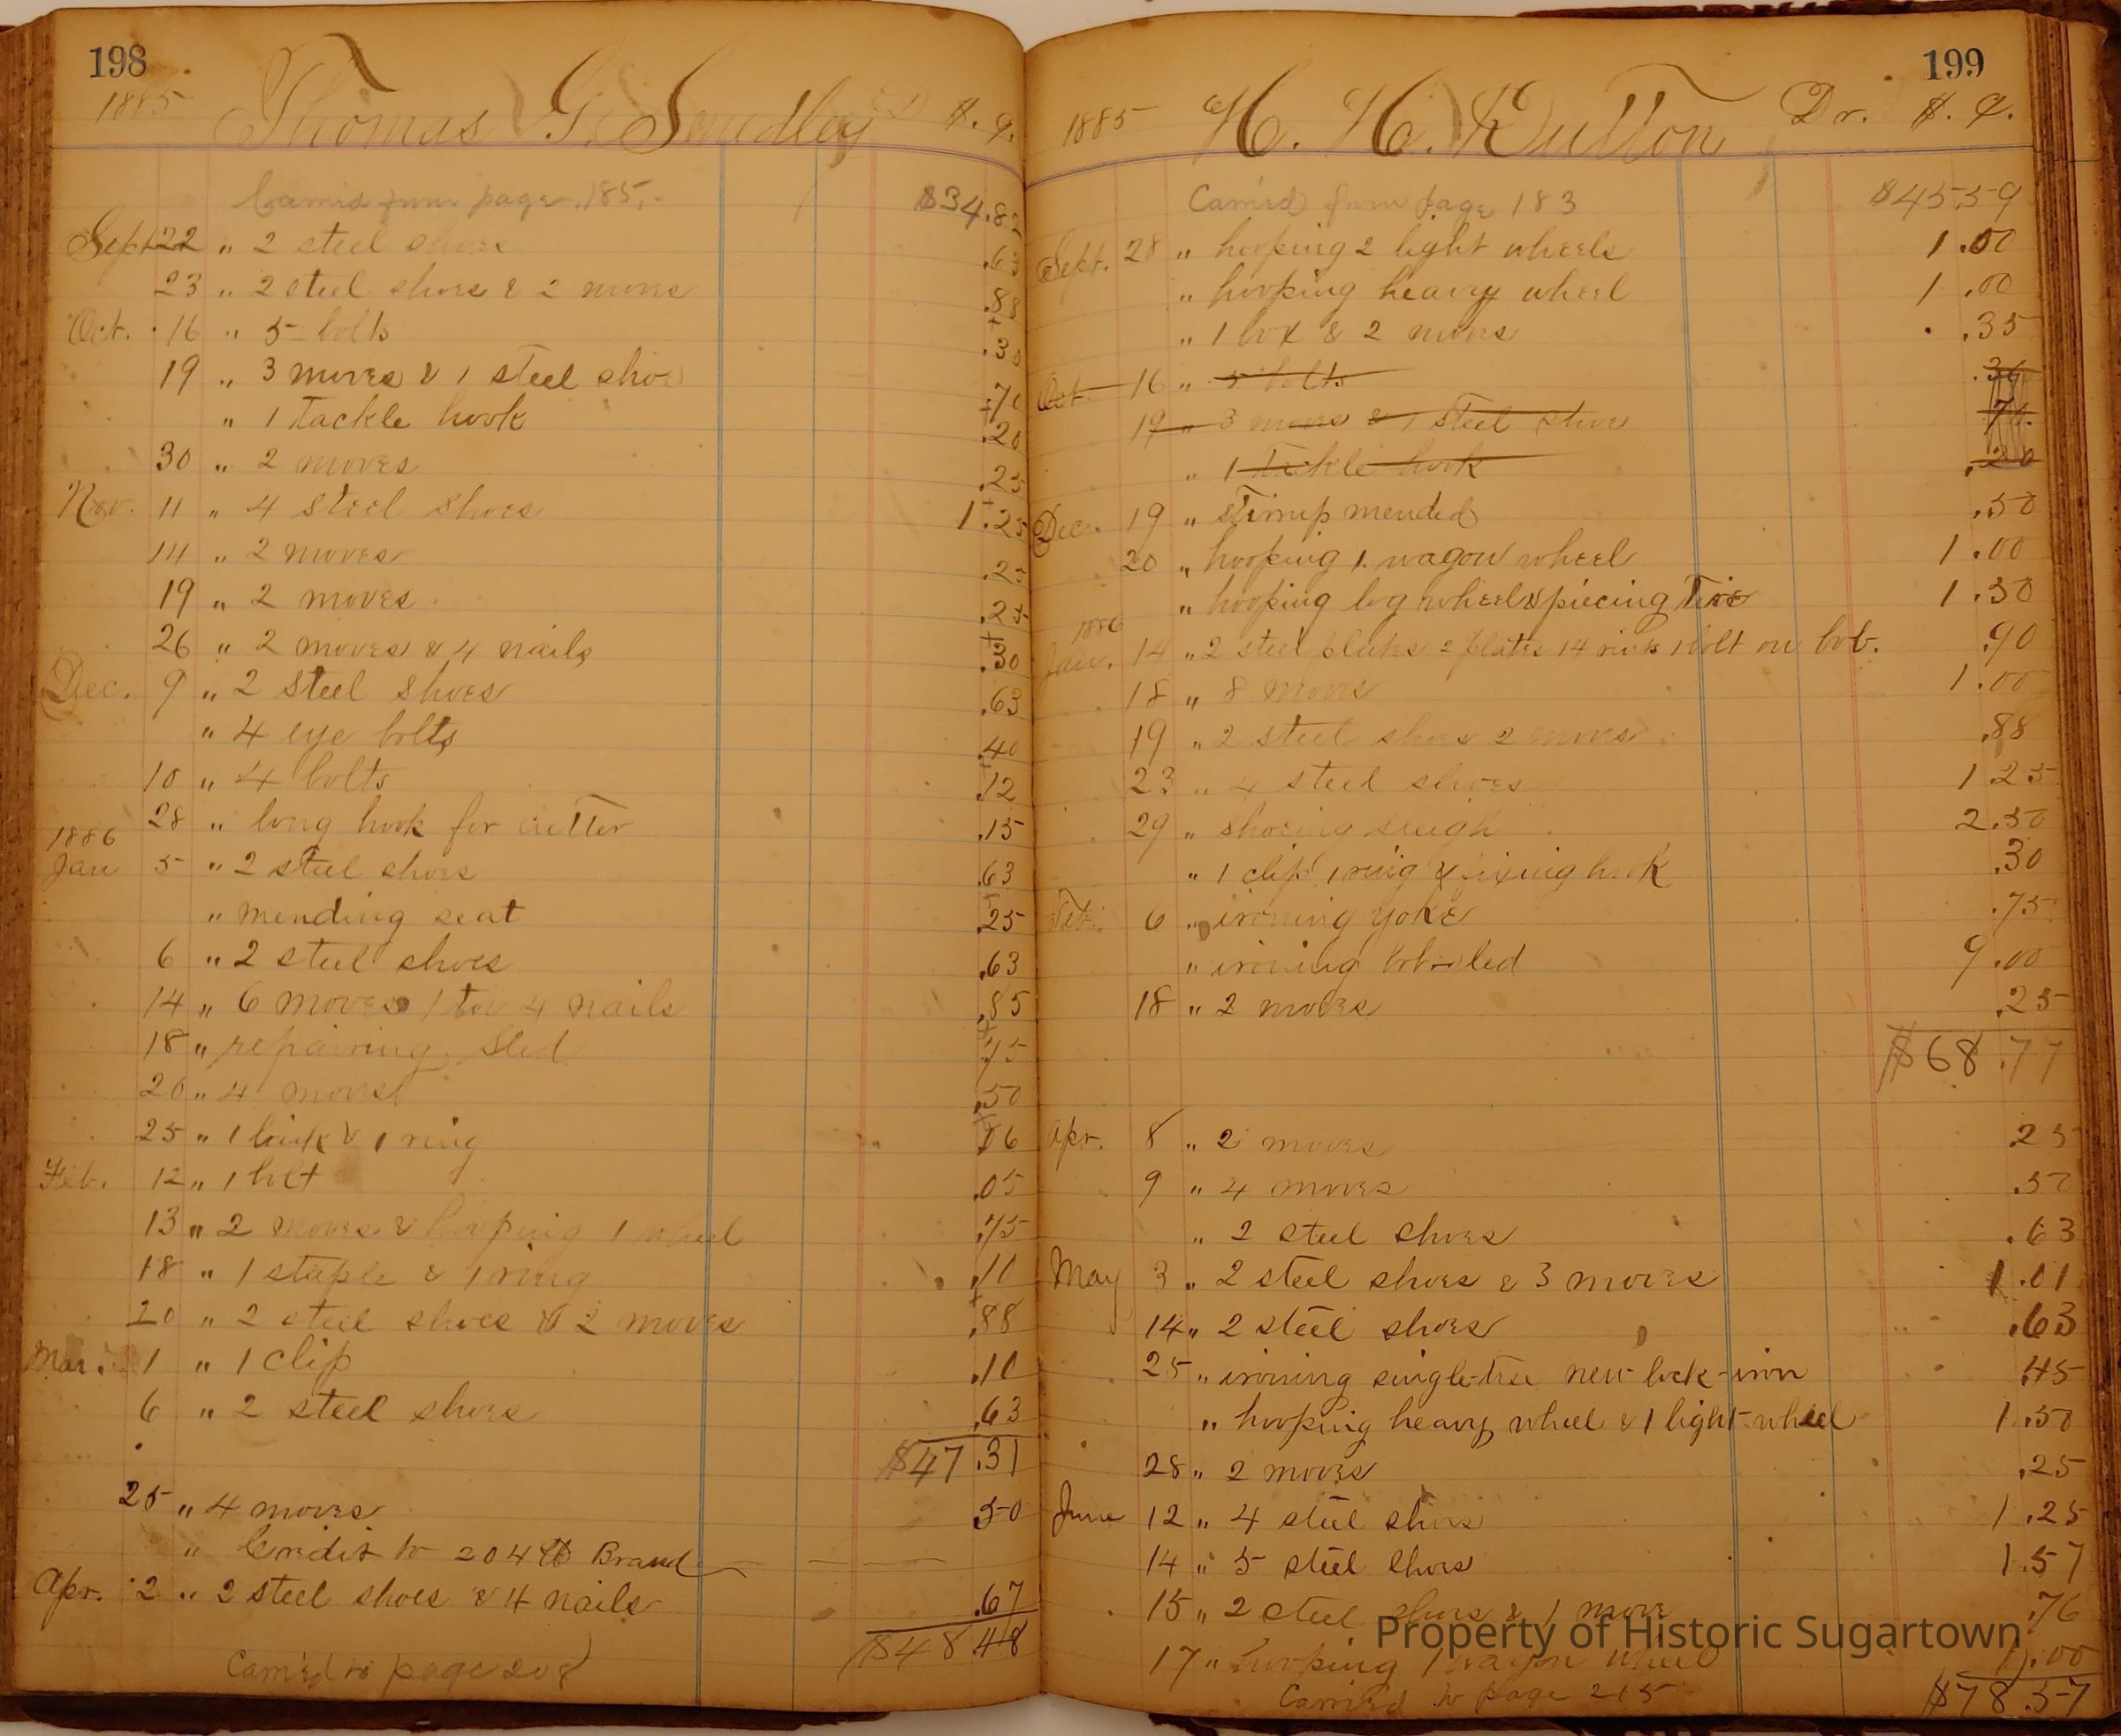 198
1885 Thomas G. Smedley $. ¢.
Carried from page 185. $34.82
Sept 22 " 2 steel shoes .63
23 " 2 steel shoes & 2 moves .88
Oct. 16 " 5 bolts .30
19 " 3 moves & 1 steel shoe .70
" 1 tackle hook .20
30 " 2 moves .25
Nov. 11 " 4 steel shoes 1.25
14 " 2 moves .25
19 " 2 moves .25
26 " 2 moves & 4 nails .30
Dec. 9 " 2 steel shoes .63
" 4 eye bolts .40
10 " 4 bolts .12
28 " long hook for cutter .15
1886
Jan 5 " 2 steel shoes .63
" mending seat .25
6 " 2 steel shoes .63
14 " 6 moves 1 toe 4 nails .85
18 " repairing sled .75
20 " 4 moves .50
25 " 1 link & 1 ring .06
Feb. 12 " 1 bolt .05
13 " 2 moves & hooping 1 wheel .75
18 " 1 staple & 1 ring .11
20 " 2 steel shoes & 2 moves .88
Mar. 1 " 1 clip .10
6 " 2 steel shoes .63
$47.31
25 " 4 moves 50
" Credit to 204 lb Brand
Apr. 2 " 2 steel shoes & 4 nails .67
$48.48
Carried to page 208
199
1885 H. H. Dutton Dr. $. ¢.
Carried from page 183 $45.59
Sept. 28 " hooping 2 light wheels 1.00
" hooping heavy wheel 1.00
" 1 box & 2 moves .35
Oct 16 " 5 bolts .30
19 " 3 moves & 1 steel shoe .70
" 1 tackle hook .20
Dec. 19 " stirrup mended .50
20 " hooping 1 wagon wheel 1.00
" hooping log wheel & piecing tire 1.50
1886
Jan. 14 " 2 steel plates 2 plates 14 rivets 1 bolt on bob. .90
18 " 8 moves 1.00
19 " 2 steel shoes 2 moves .88
23 " 4 steel shoes 1 25
29 " shoeing sleigh 2.50
" 1 clip 1 ring & fixing hook .30
Feb. 6 " ironing yoke .75
" ironing bob-sled 9.00
18 " 2 moves .25
$68.77
Apr. 8 " 2 moves 25
9 " 4 moves .50
" 2 steel shoes .63
May 3 " 2 steel shoes & 3 moves 1.01
14 " 2 steel shoes .63
25 " ironing single-tree new lock-iron .45
" hooping heavy wheel & 1 light wheel 1.50
28 " 2 moves .25
June 12 " 4 steel shoes 1.25
14 " 5 steel shoes 1.57
15 " 2 steel shoes & 1 move .76
Property of Historic Sugartown
17 " hooping 1 wagon wheel 1.00
Carried to page 215 $78.57